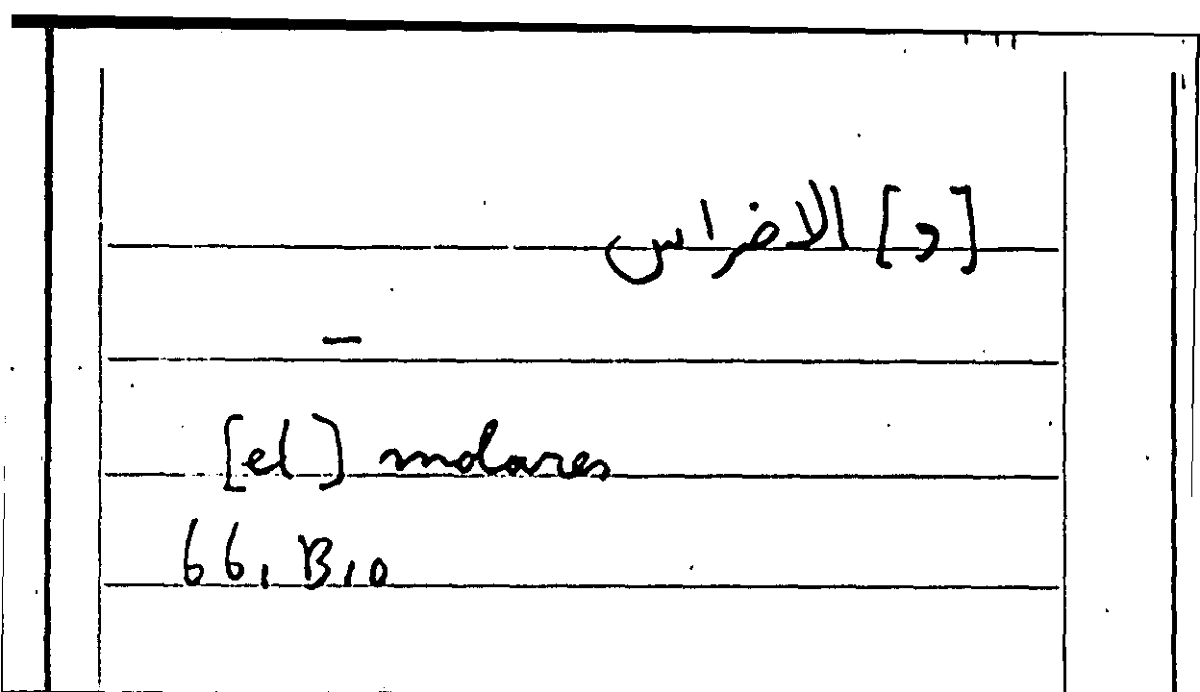 [و] الاضراس
–
[el] molares
66, B, 0